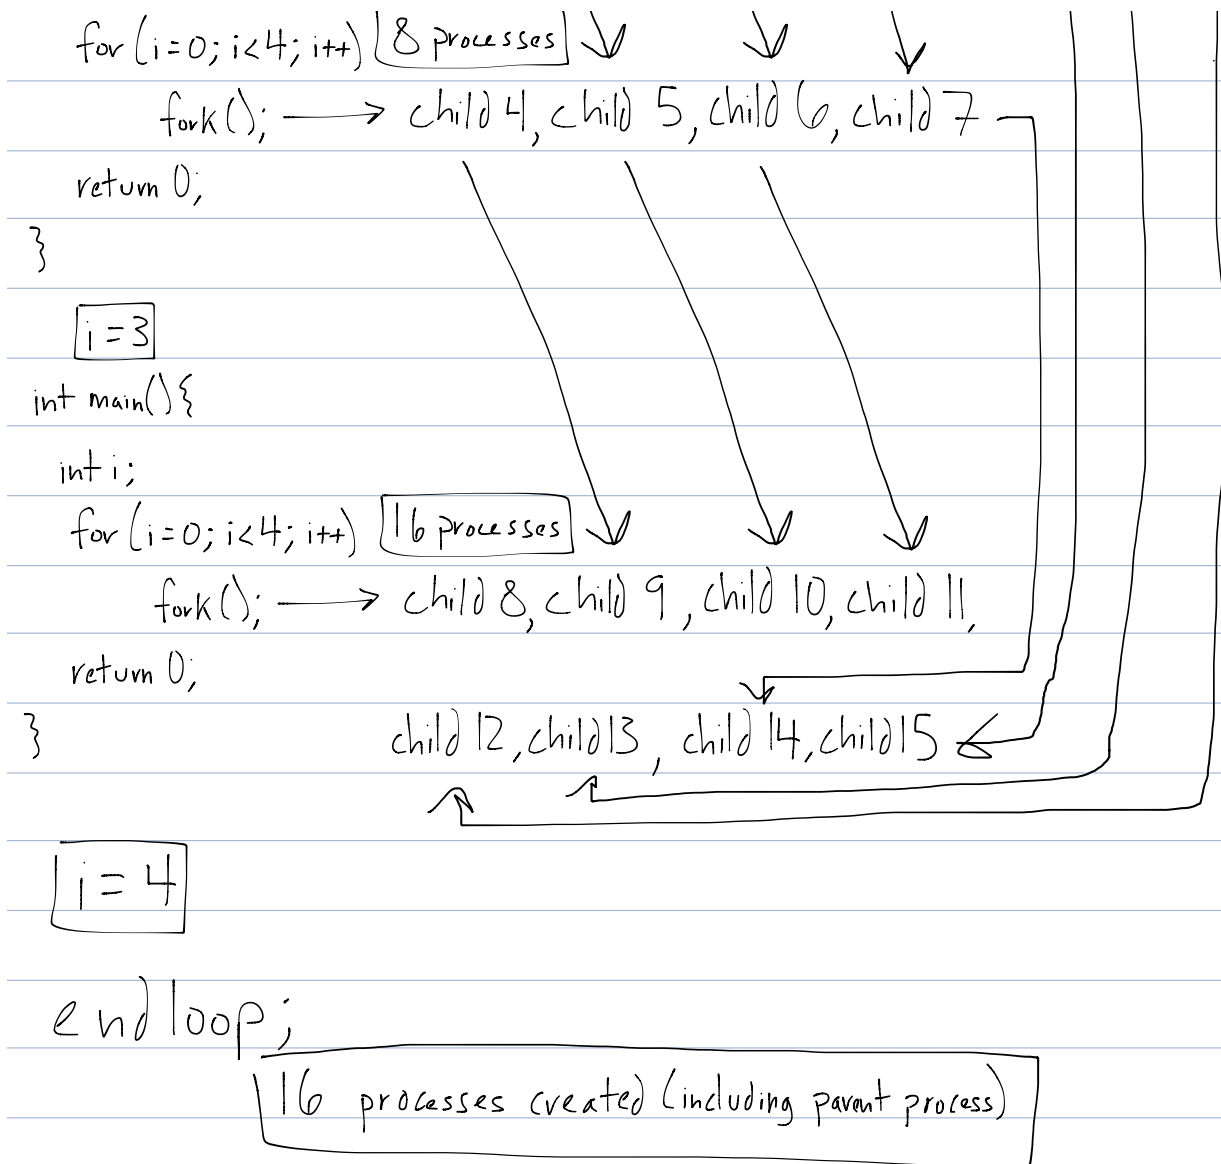 for (i=0; i<4; i++) 8 processes
fork(); → child 4, child 5, child 6, child 7
return 0;
}
i=3
int main(){
int i;
for (i=0; i<4; i++) 16 processes
fork(); → child 8, child 9, child 10, child 11,
return 0;
} child 12, child 13, child 14, child 15
i = 4
end loop;
16 processes created (including parent process)